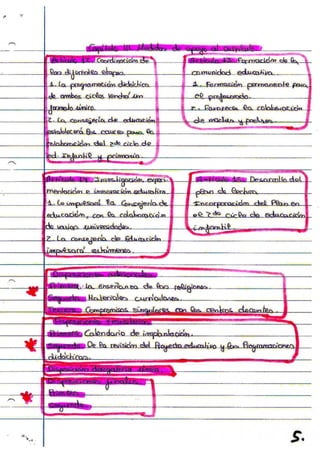 Capítulo III. Medidas de apoyo al currículo
Artículo 12. Coordinación de
las diferentes etapas.
1. La programación didáctica
de ambos ciclos tendrá un
formato único.
2. La consejería de educación
establecerá los cauces para la
colaboración del 2do ciclo de
ed. Infantil y primaria.
Artículo 13. Formación de la
comunidad educativa.
1. Formación permanente para
el profesorado.
2. Fomento la colaboración
de madres y padres.
Artículo 14. Investigación, experi-
mentación e innovación educativa.
1. Lo impulsará la Consejería de
educación, con la colaboración
de varias universidades.
2. La consejería de Educación
impulsará
Artículo 15. Desarrollo del
plan de lectura.
Incorporación del Plan en
el 2do ciclo de educación
infantil.
Disposiciones adicionales
Primera. La enseñanza de las religiones.
Segunda. Materiales curriculares.
Tercera. Compromisos singulares con los centros docentes.
Disposiciones transitorias
Primera. Calendario de implantación.
Segunda. De la revisión del Proyecto educativo y las Programaciones
didácticas.
Disposición derogatoria única
Disposiciones finales
Primera
Segunda
5.